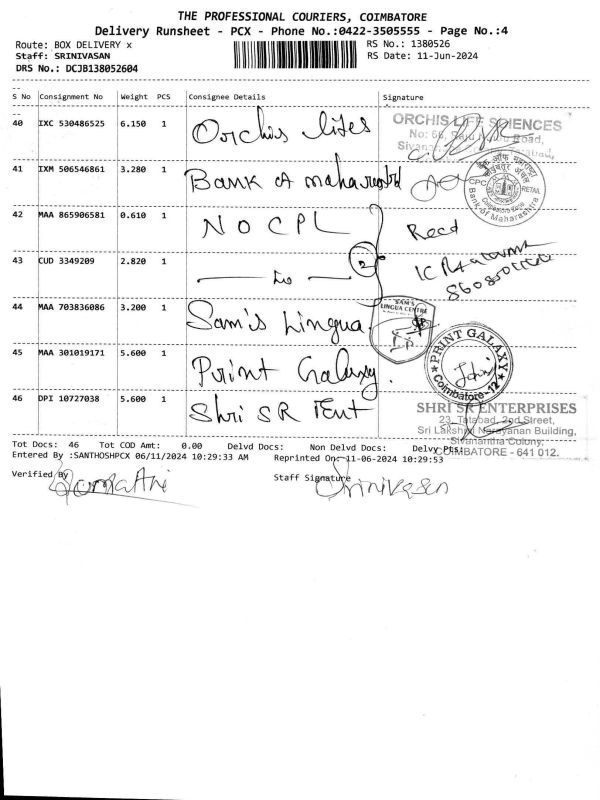 THE PROFESSIONAL COURIERS, COIMBATORE
Delivery Runsheet - PCX - Phone No.:0422-3505555 - Page No.:4
Route: BOX DELIVERY x
RS No.: 1380526
Staff: SRINIVASAN
RS Date: 11-Jun-2024
DRS No.: DCJB138052604
S No Consignment No Weight PCS Consignee Details Signature
40 IXC 530486525 6.150 1 Orchis lifes
ORCHIS LIFE SCIENCES
41 IXM 506546861 3.280 1 Bank of maharastra
CPC RETAIL
Bank of Maharashtra
42 MAA 865906581 0.610 1 NOCPL
Recd
43 CUD 3349209 2.820 1 2
44 MAA 703836086 3.200 1 Sam's Lingua
SAM'S
LINGUA CENTRE
45 MAA 301019171 5.600 1 Print Galaxy.
PRINT GALAXY
Coimbatore-12
46 DPI 10727038 5.600 1 Shri SR Tent
SHRI SR ENTERPRISES
23, Tatabad, 2nd Street,
Sri Lakshmi Narayanan Building,
Sivanantha Colony,
COIMBATORE - 641 012.
Tot Docs: 46 Tot COD Amt: 0.00 Delvd Docs: Non Delvd Docs: Delvy Pts:
Entered By :SANTHOSHPCX 06/11/2024 10:29:33 AM Reprinted On: 11-06-2024 10:29:53
Verified By Staff Signature
Srinivasan